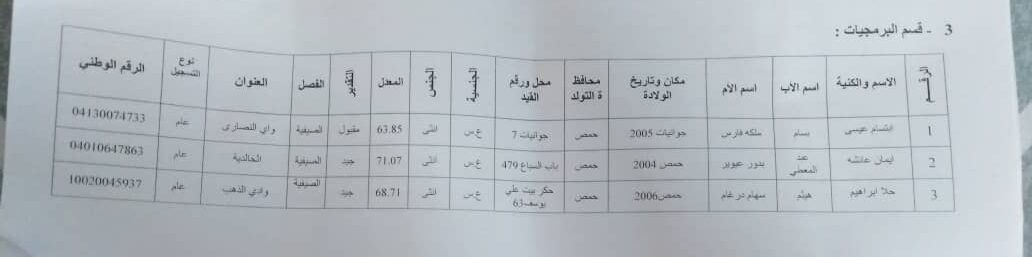 3 - قسم البرمجيات :
الرقم الاسم والكنية اسم الأب اسم الأم مكان وتاريخ الولادة محافظة التولد محل ورقم القيد الجنسية الجنس المعدل التقدير الفصل العنوان نوع التسجيل الرقم الوطني
1 ابتسام عيسى بسام ملكه فارس جوانيات 2005 حمص جوانيات 7 ع.س انثى 63.85 مقبول الصيفية وادي النصارى عام 04130074733
2 ايمان عائشه عبد المعطي بدور عيوير حمص 2004 حمص باب السباع 479 ع.س انثى 71.07 جيد الصيفية الخالدية عام 04010647863
3 حلا ابراهيم هيثم سهام درغام حمص2006 حمص حكر بيت علي يوسف63 ع.س انثى 68.71 جيد الصيفية وادي الذهب عام 10020045937